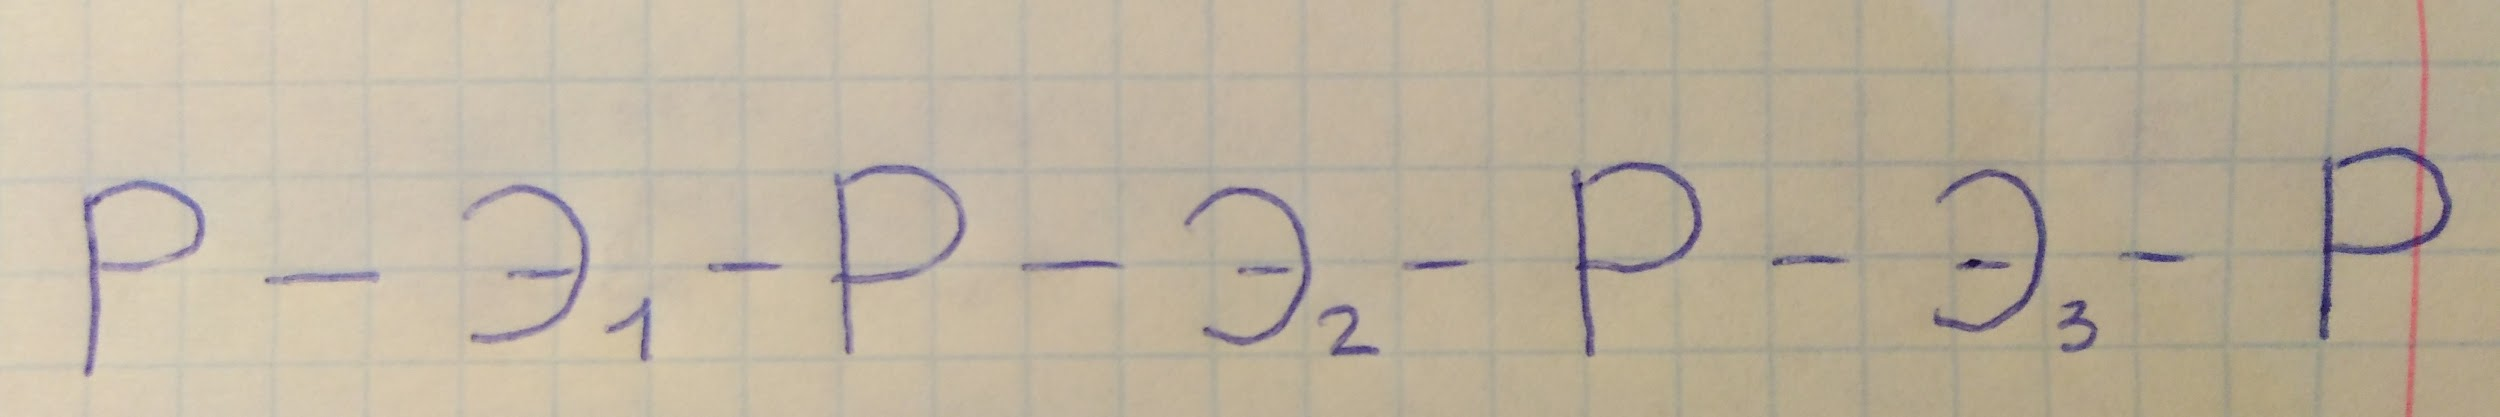 Р - Э₁ - Р - Э₂ - Р - Э₃ - Р